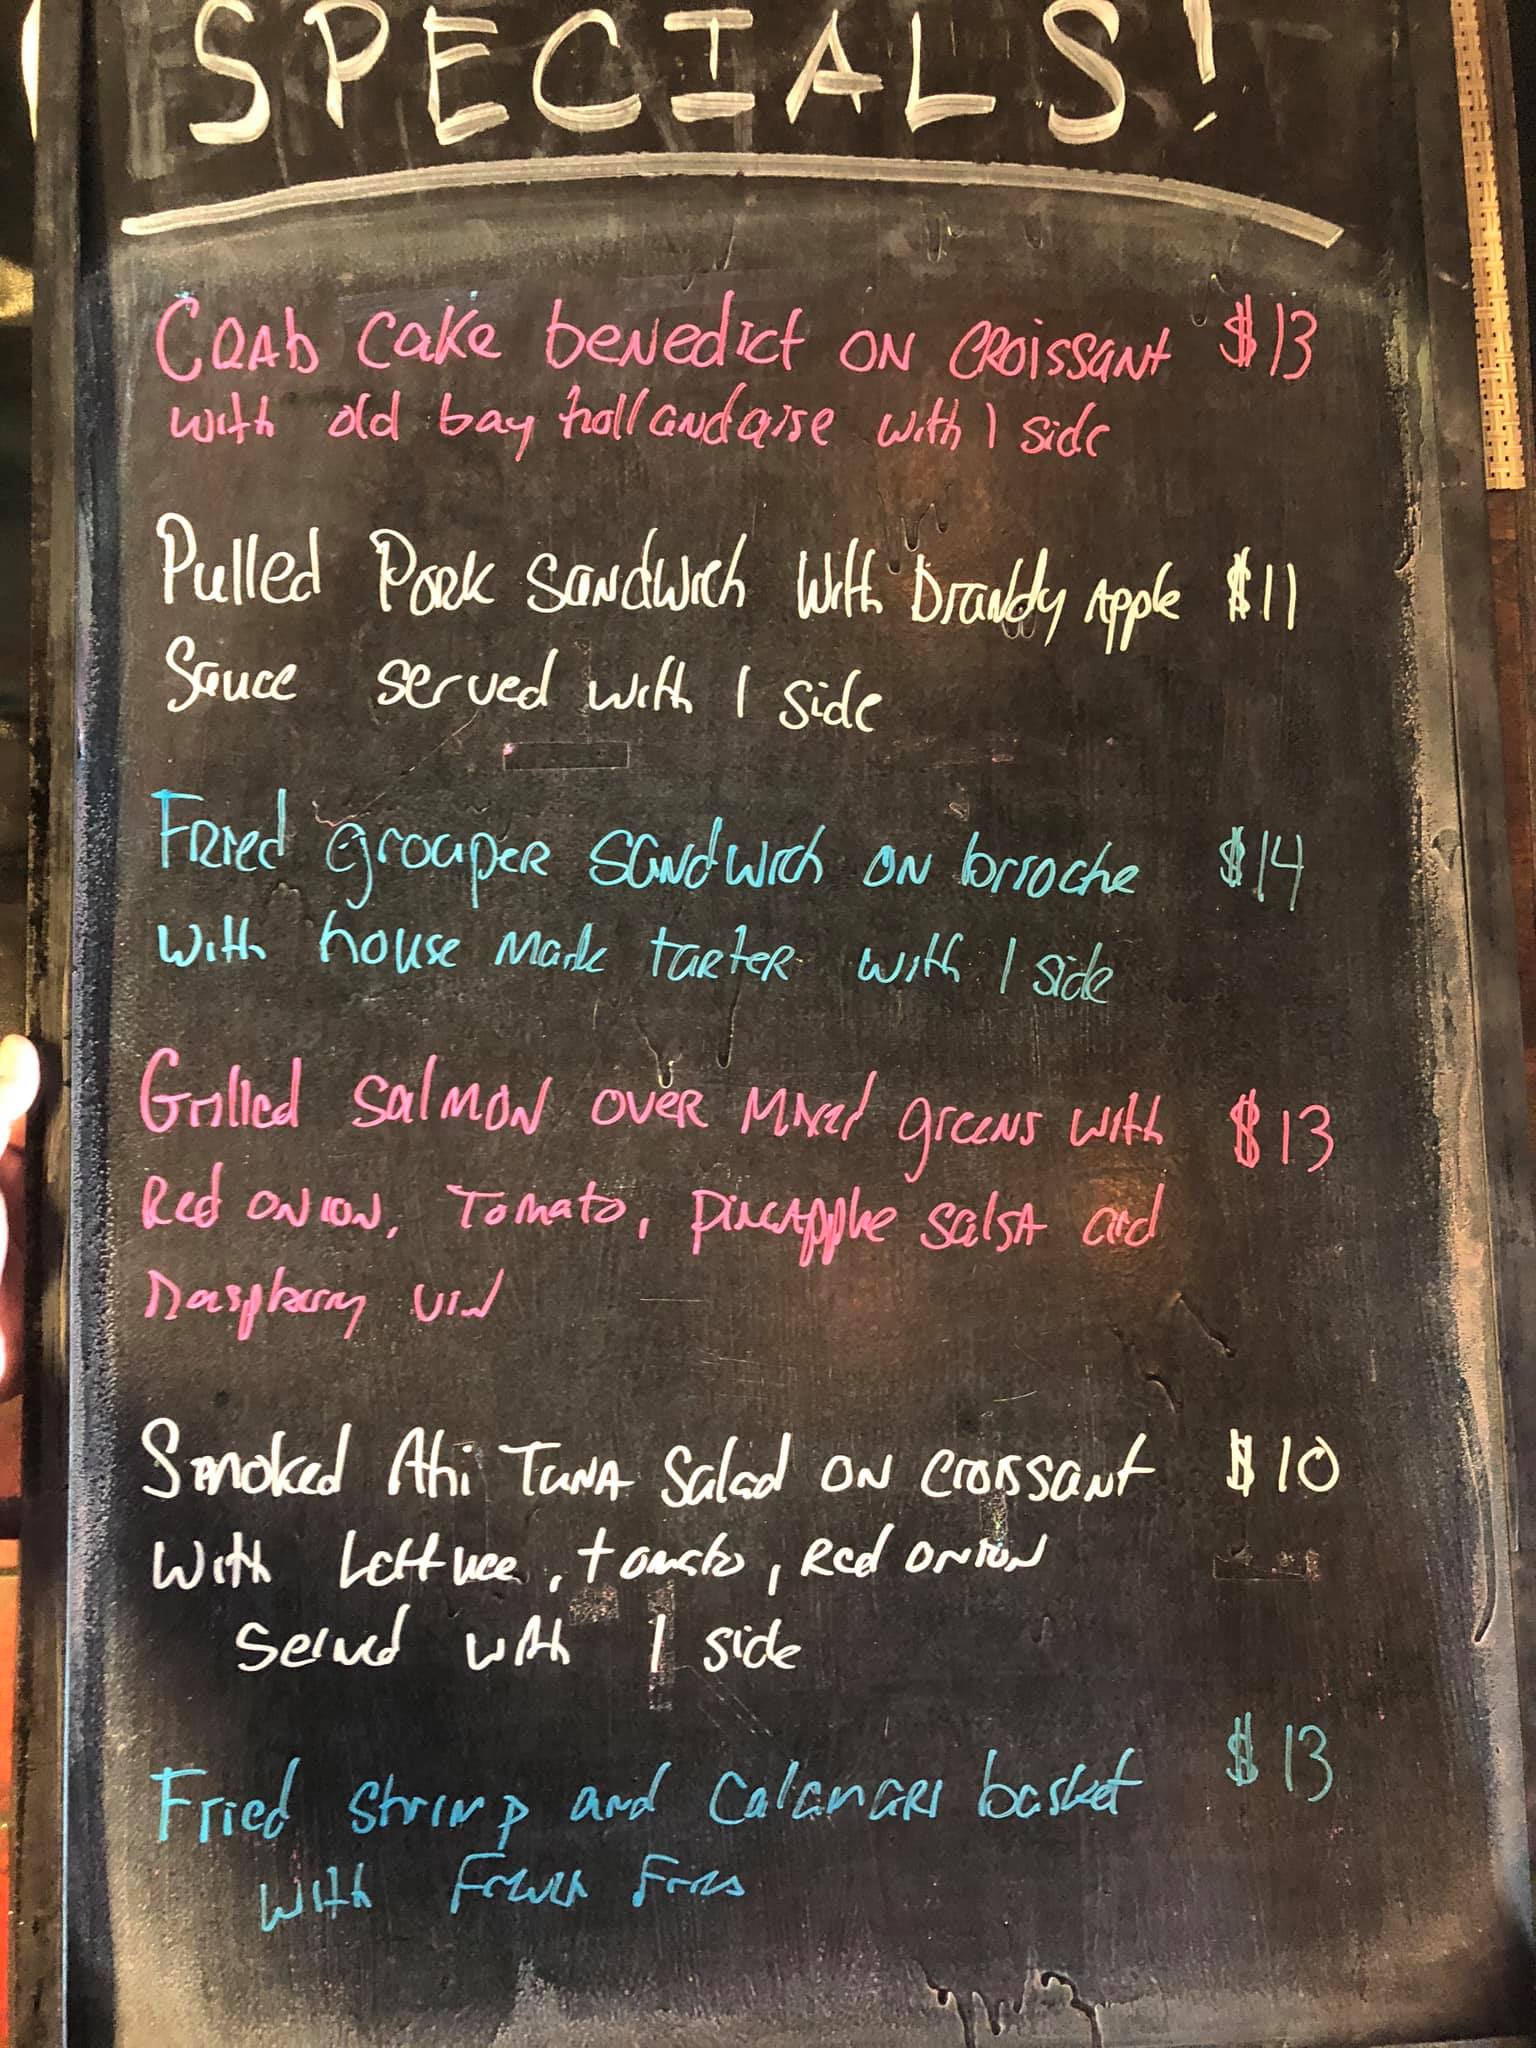 SPECIALS!
Crab cake benedict on croissant $13
with old bay hollandaise with 1 side
Pulled Pork Sandwich with Brandy Apple $11
Sauce served with 1 side
Fried grouper sandwich on brioche $14
with house made tarter with 1 side
Grilled salmon over mixed greens with $13
Red onion, Tomato, pineapple salsa and
Raspberry vin
Smoked Ahi Tuna Salad on croissant $10
with lettuce, tomato, red onion
served with 1 side
Fried shrimp and Calamari basket $13
with French Fries